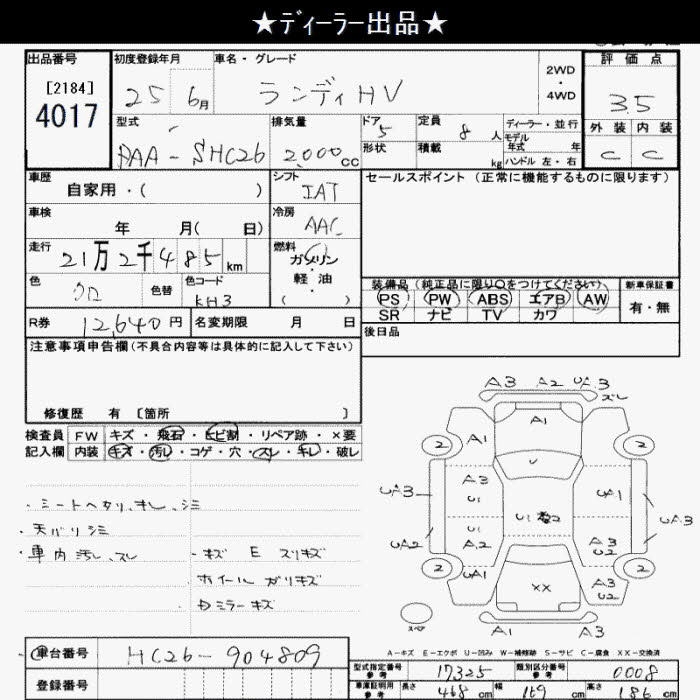 ★ディーラー出品★
出品番号 初度登録年月 車名・グレード 評価点
[2184] 2WD
4017 25 6月 ランディHV ・ 3.5
4WD
型式 排気量 ドア 定員 ディーラー・並行 外装 内装
DAA-SHC26 2,000cc 5 8人 モデル年式 年 C C
形状 積載 kg ハンドル 左・右
車歴 シフト セールスポイント (正常に機能するものに限ります)
自家用・( ) IAT
車検 冷房
年 月( 日) AAC
走行 燃料
21万2千485km ガソリン・
色 色替 色コード 軽油・
クロ KH3 ( )
装備品 (純正品に限り○をつけてください) 新車保証書
PS PW ABS エアB AW 有・無
SR ナビ TV カワ
R券 12,640円 名変期限 月 日 後日品
注意事項申告欄(不具合内容等は具体的に記入して下さい)
修復歴 有 [箇所 ]
検査員 FW キズ・飛石・ヒビ割・リペア跡・×要
記入欄 内装 キズ・汚レ・コゲ・穴・スレ・キレ・破レ
・シートヘタリ、キレ、シミ
・天バリシミ
・車内汚レ、スレ ・キズ E スリキズ
ホイールガリキズ
ミラーキズ
A3 A2 UA3
スレ
A1
A1
2 2
U
A3
U1 UA1
UA3 U1 2 UA3
U1
UA2 A2 A3
U2
2 UA1 A3 2
U2
XX
スペア A1 A3
A-キズ E-エクボ U-凹み W-補修跡 S-サビ C-腐食 XX-交換済
車台番号 HC26-904809
型式指定番号 参考 17325 類別区分番号 参考 0008
登録番号
車庫証明用 参考 長さ 468cm 幅 169cm 高さ 186cm